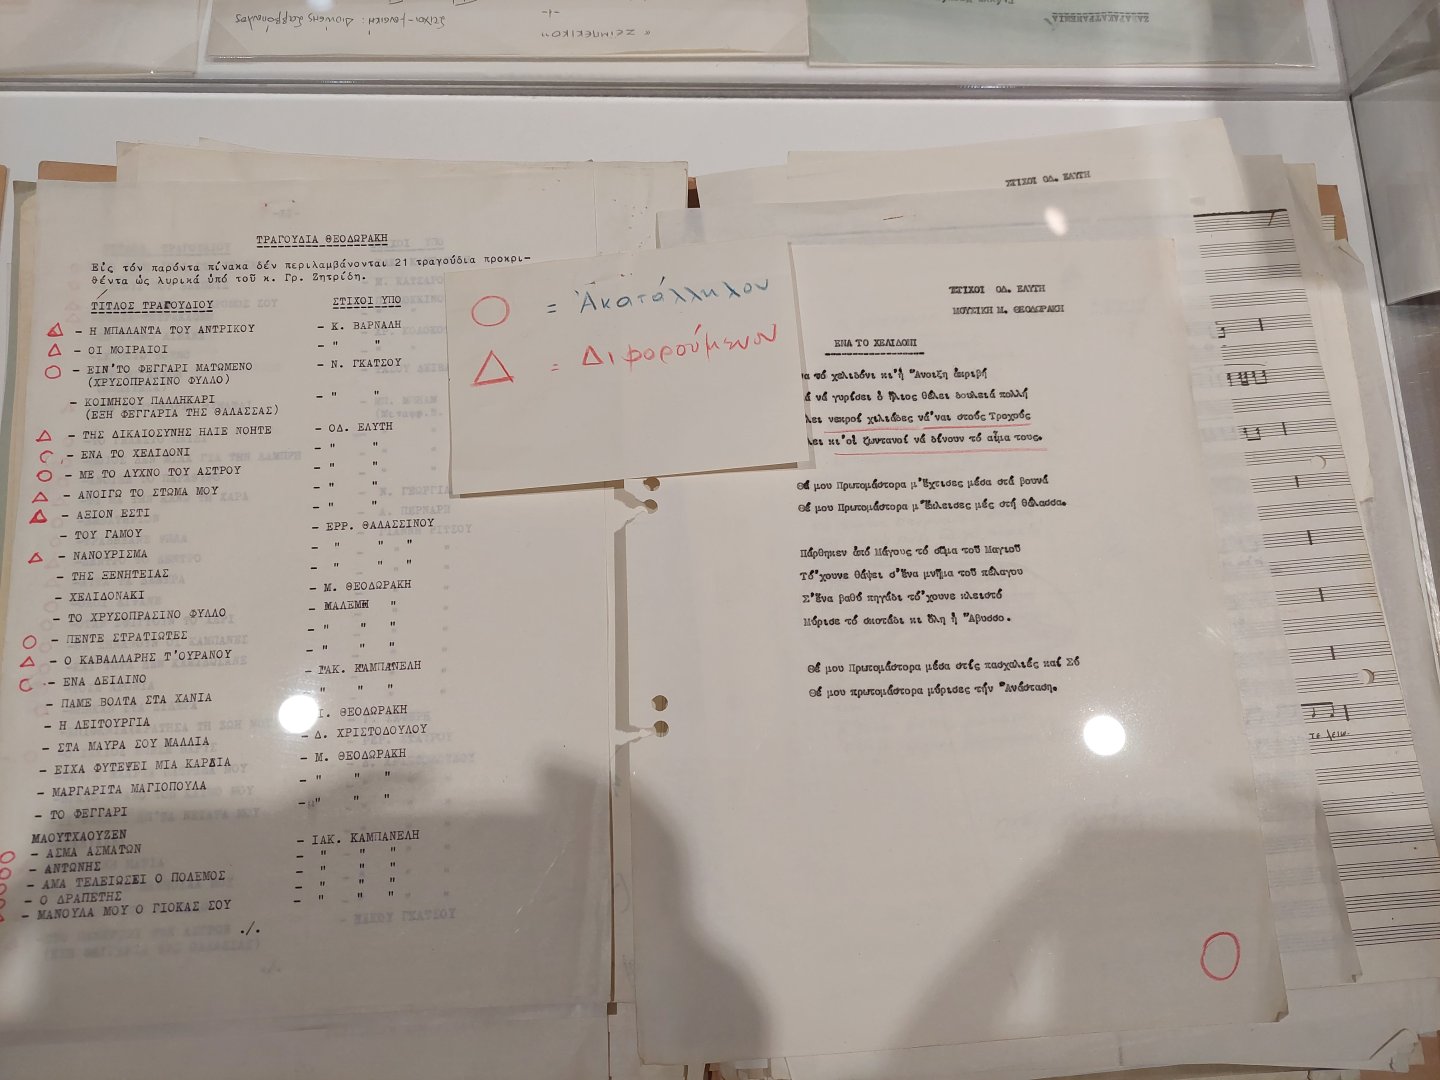 Στίχοι-μουσική : Διονύσης Σαββόπουλος
"ΖΕΙΜΠΕΚΙΚΟ"
-1-
ΤΡΑΓΟΥΔΙΑ ΘΕΟΔΩΡΑΚΗ
Εἰς τόν παρόντα πίνακα δέν περιλαμβάνονται 21 τραγούδια προκρι-
θέντα ὡς λυρικά ὑπό τοῦ κ. Γρ. Ζητρίδη.
ΤΙΤΛΟΣ ΤΡΑΓΟΥΔΙΟΥ ΣΤΙΧΟΙ ΥΠΟ
- Η ΜΠΑΛΑΝΤΑ ΤΟΥ ΑΝΤΡΙΚΟΥ - Κ. ΒΑΡΝΑΛΗ
- ΟΙ ΜΟΙΡΑΙΟΙ - " "
- ΕΙΝ'ΤΟ ΦΕΓΓΑΡΙ ΜΑΤΩΜΕΝΟ - Ν. ΓΚΑΤΣΟΥ
(ΧΡΥΣΟΠΡΑΣΙΝΟ ΦΥΛΛΟ)
- ΚΟΙΜΗΣΟΥ ΠΑΛΛΗΚΑΡΙ - " "
(ΕΞΗ ΦΕΓΓΑΡΙΑ ΤΗΣ ΘΑΛΑΣΣΑΣ)
- ΤΗΣ ΔΙΚΑΙΟΣΥΝΗΣ ΗΛΙΕ ΝΟΗΤΕ - ΟΔ. ΕΛΥΤΗ
- ΕΝΑ ΤΟ ΧΕΛΙΔΟΝΙ - " "
- ΜΕ ΤΟ ΛΥΧΝΟ ΤΟΥ ΑΣΤΡΟΥ - " "
- ΑΝΟΙΓΩ ΤΟ ΣΤΟΜΑ ΜΟΥ - " "
- ΑΞΙΟΝ ΕΣΤΙ - " "
- ΤΟΥ ΓΑΜΟΥ - ΕΡΡ. ΘΑΛΑΣΣΙΝΟΥ
- ΝΑΝΟΥΡΙΣΜΑ - " " "
- ΤΗΣ ΞΕΝΗΤΕΙΑΣ - " " "
- ΧΕΛΙΔΟΝΑΚΙ - Μ. ΘΕΟΔΩΡΑΚΗ
- ΤΟ ΧΡΥΣΟΠΡΑΣΙΝΟ ΦΥΛΛΟ - ΜΑΛΕΜΗ "
- ΠΕΝΤΕ ΣΤΡΑΤΙΩΤΕΣ - " " "
- Ο ΚΑΒΑΛΛΑΡΗΣ Τ'ΟΥΡΑΝΟΥ - " " "
- ΕΝΑ ΔΕΙΛΙΝΟ - ΙΑΚ. ΚΑΜΠΑΝΕΛΗ
- ΠΑΜΕ ΒΟΛΤΑ ΣΤΑ ΧΑΝΙΑ - " " "
- Η ΛΕΙΤΟΥΡΓΙΑ Ι. ΘΕΟΔΩΡΑΚΗ
- ΣΤΑ ΜΑΥΡΑ ΣΟΥ ΜΑΛΛΙΑ - Δ. ΧΡΙΣΤΟΔΟΥΛΟΥ
- ΕΙΧΑ ΦΥΤΕΨΕΙ ΜΙΑ ΚΑΡΔΙΑ - Μ. ΘΕΟΔΩΡΑΚΗ
- ΜΑΡΓΑΡΙΤΑ ΜΑΓΙΟΠΟΥΛΑ - " " "
- ΤΟ ΦΕΓΓΑΡΙ - " " "
ΜΑΟΥΤΧΑΟΥΖΕΝ
- ΑΣΜΑ ΑΣΜΑΤΩΝ - ΙΑΚ. ΚΑΜΠΑΝΕΛΗ
- ΑΝΤΩΝΗΣ - " " "
- ΑΜΑ ΤΕΛΕΙΩΣΕΙ Ο ΠΟΛΕΜΟΣ - " " "
- Ο ΔΡΑΠΕΤΗΣ - " " "
- ΜΑΝΟΥΛΑ ΜΟΥ Ο ΓΙΟΚΑΣ ΣΟΥ - " " "
./.
= Ἀκατάλληλον
= Διφορούμενον
ΣΤΙΧΟΙ ΟΔ. ΕΛΥΤΗ
ΣΤΙΧΟΙ ΟΔ. ΕΛΥΤΗ
ΜΟΥΣΙΚΗ Μ. ΘΕΟΔΩΡΑΚΗ
ΕΝΑ ΤΟ ΧΕΛΙΔΟΝΙ
να τό χελιδόνι κι'ἡ Ἄνοιξη ἀκριβή
ά νά γυρίσει ὁ ἥλιος θέλει δουλειά πολλή
λει νεκροί χιλιάδες νά'ναι στούς Τροχούς
λει κι'οἱ ζωντανοί νά δίνουν τό αἷμα τους.
Θέ μου Πρωτομάστορα μ'ἔχτισες μέσα στά βουνά
Θέ μου Πρωτομάστορα μ'ἔκλεισες μές στή θάλασσα.
Πάρθηκεν ἀπό Μάγους τό σῶμα τοῦ Μαγιοῦ
Τό'χουνε θάψει σ'ἕνα μνῆμα τοῦ πέλαγου
Σ'ἕνα βαθύ πηγάδι τό'χουνε κλειστό
Μύρισε τό σκοτάδι κι ὅλη ἡ Ἄβυσσο.
Θέ μου Πρωτομάστορα μέσα στίς πασχαλιές καί Σύ
Θέ μου πρωτομάστορα μύρισες τήν Ἀνάσταση.